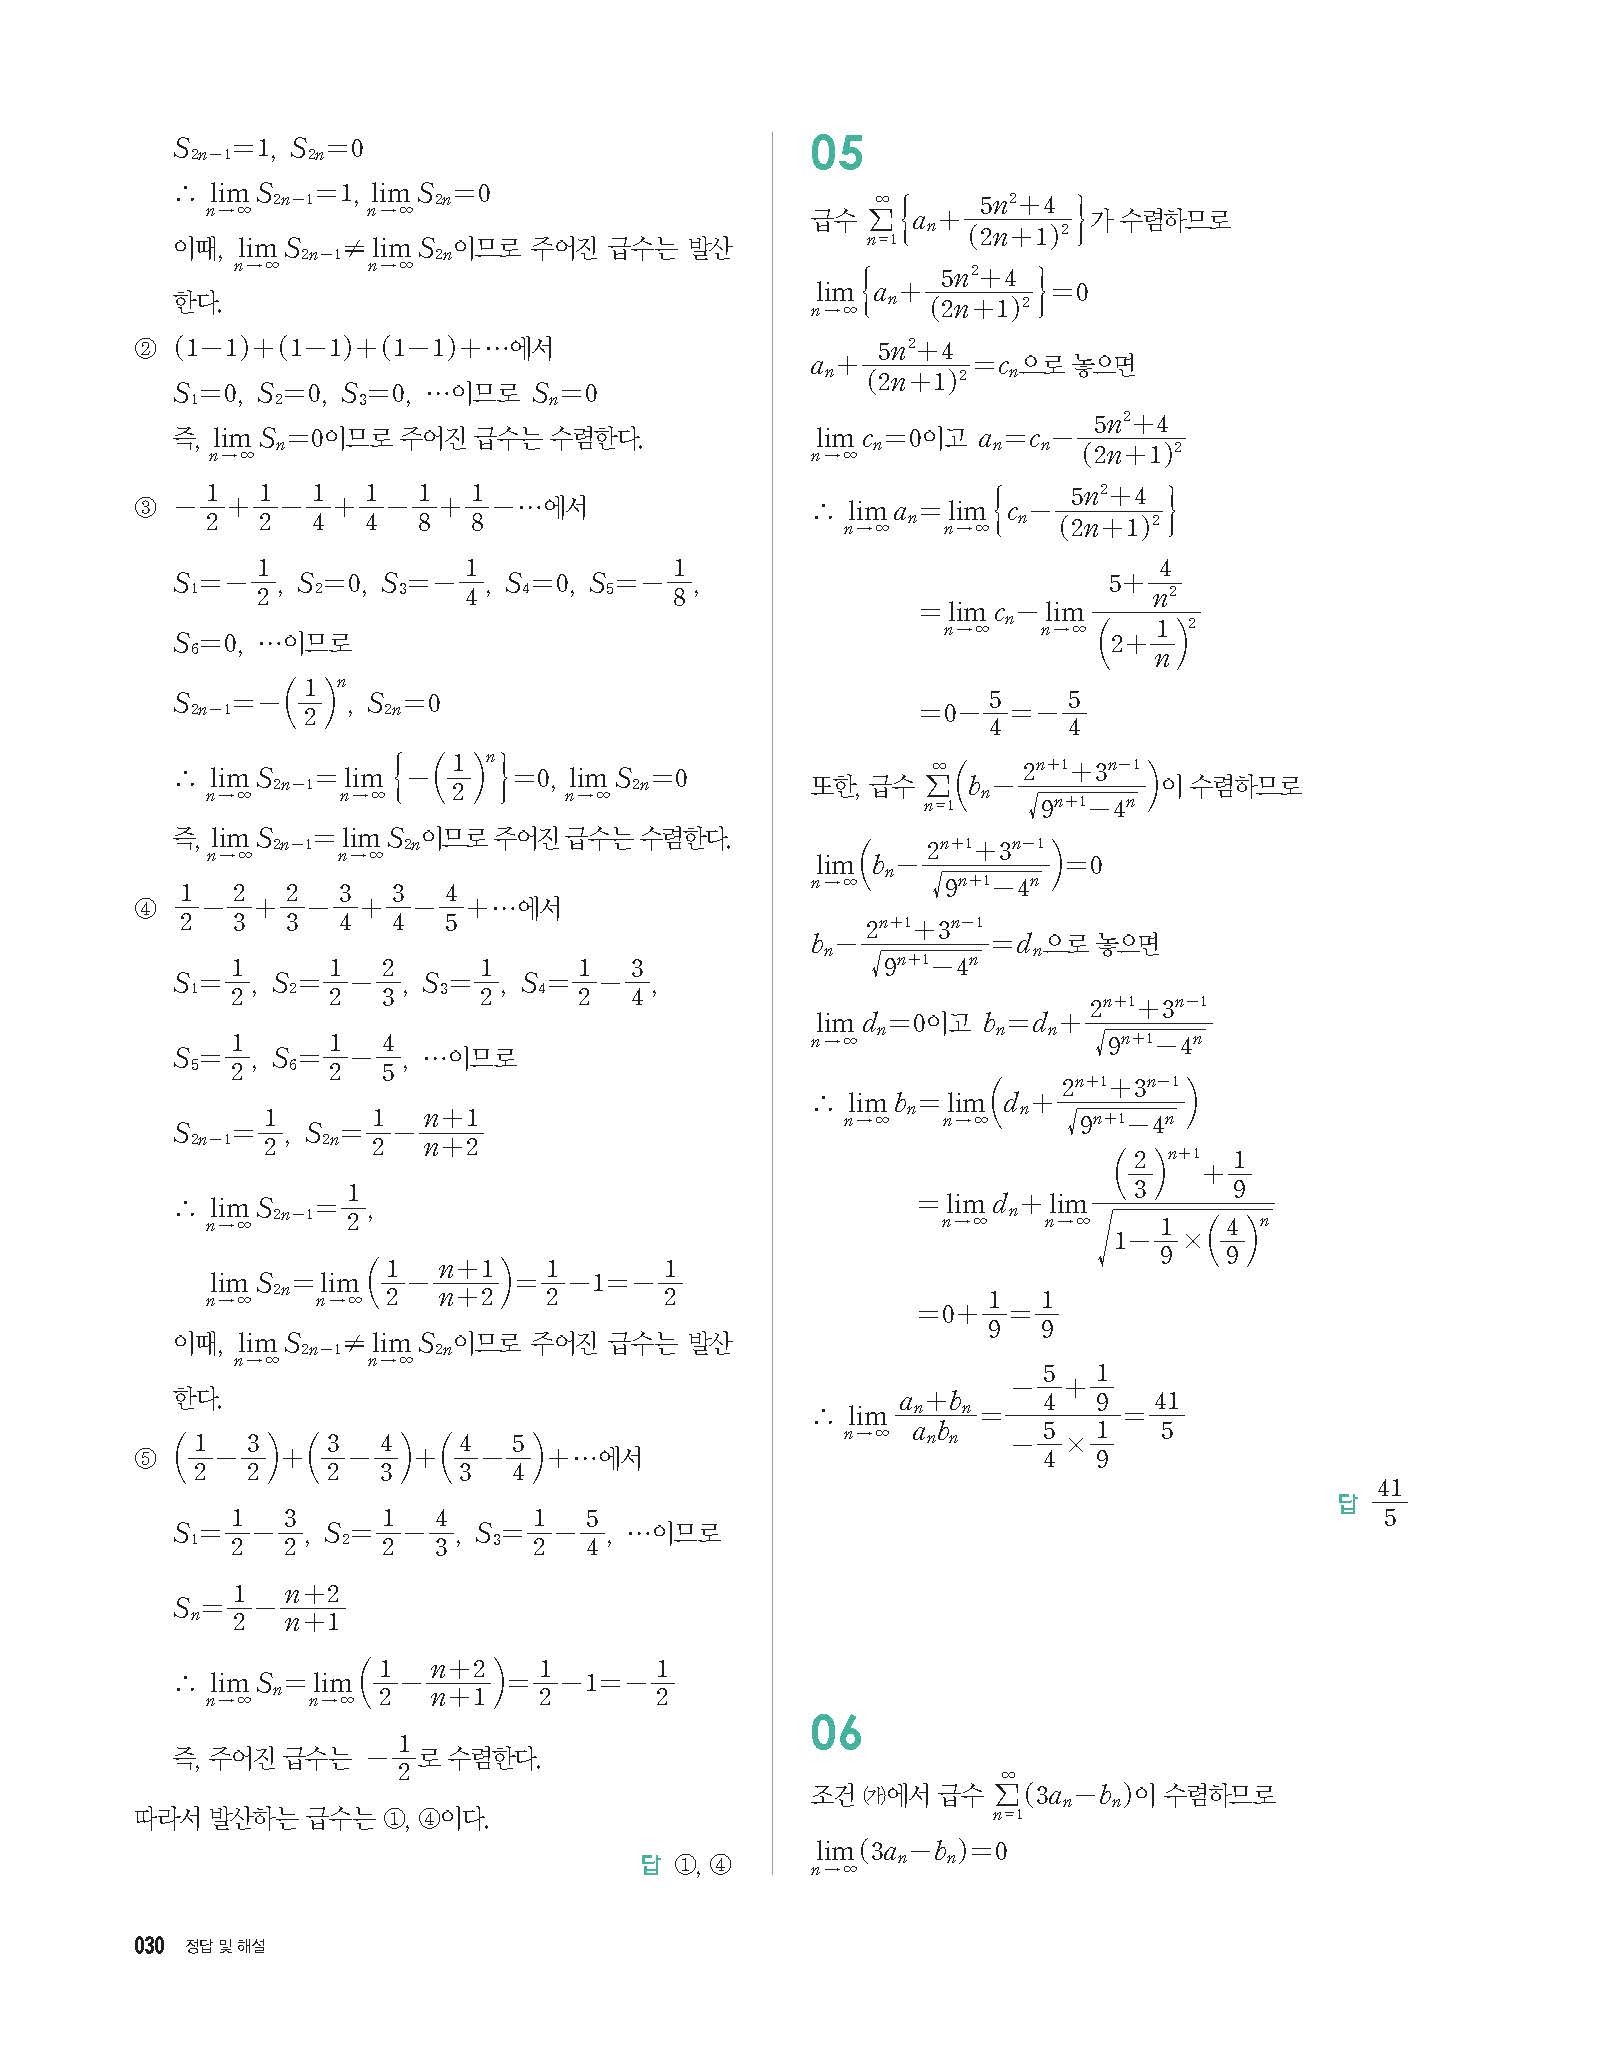 S₂ₙ₋₁=1, S₂ₙ=0
∴ lim_{n→∞} S₂ₙ₋₁=1, lim_{n→∞} S₂ₙ=0
이때, lim_{n→∞} S₂ₙ₋₁≠lim_{n→∞} S₂ₙ이므로 주어진 급수는 발산
한다.
② (1-1)+(1-1)+(1-1)+⋯에서
S₁=0, S₂=0, S₃=0, ⋯이므로 Sₙ=0
즉, lim_{n→∞} Sₙ=0이므로 주어진 급수는 수렴한다.
③ -1/2+1/2-1/4+1/4-1/8+1/8-⋯에서
S₁=-1/2, S₂=0, S₃=-1/4, S₄=0, S₅=-1/8,
S₆=0, ⋯이므로
S₂ₙ₋₁=-(1/2)^n, S₂ₙ=0
∴ lim_{n→∞} S₂ₙ₋₁=lim_{n→∞} {-(1/2)^n}=0, lim_{n→∞} S₂ₙ=0
즉, lim_{n→∞} S₂ₙ₋₁=lim_{n→∞} S₂ₙ이므로 주어진 급수는 수렴한다.
④ 1/2-2/3+2/3-3/4+3/4-4/5+⋯에서
S₁=1/2, S₂=1/2-2/3, S₃=1/2, S₄=1/2-3/4,
S₅=1/2, S₆=1/2-4/5, ⋯이므로
S₂ₙ₋₁=1/2, S₂ₙ=1/2-(n+1)/(n+2)
∴ lim_{n→∞} S₂ₙ₋₁=1/2,
lim_{n→∞} S₂ₙ=lim_{n→∞} (1/2-(n+1)/(n+2))=1/2-1=-1/2
이때, lim_{n→∞} S₂ₙ₋₁≠lim_{n→∞} S₂ₙ이므로 주어진 급수는 발산
한다.
⑤ (1/2-3/2)+(3/2-4/3)+(4/3-5/4)+⋯에서
S₁=1/2-3/2, S₂=1/2-4/3, S₃=1/2-5/4, ⋯이므로
Sₙ=1/2-(n+2)/(n+1)
∴ lim_{n→∞} Sₙ=lim_{n→∞} (1/2-(n+2)/(n+1))=1/2-1=-1/2
즉, 주어진 급수는 -1/2로 수렴한다.
따라서 발산하는 급수는 ①, ④이다.
답 ①, ④
05
급수 ∑_{n=1}^{∞} {aₙ+(5n²+4)/(2n+1)²}가 수렴하므로
lim_{n→∞} {aₙ+(5n²+4)/(2n+1)²}=0
aₙ+(5n²+4)/(2n+1)²=cₙ으로 놓으면
lim_{n→∞} cₙ=0이고 aₙ=cₙ-(5n²+4)/(2n+1)²
∴ lim_{n→∞} aₙ=lim_{n→∞} {cₙ-(5n²+4)/(2n+1)²}
=lim_{n→∞} cₙ-lim_{n→∞} (5+4/n²)/(2+1/n)²
=0-5/4=-5/4
또한, 급수 ∑_{n=1}^{∞} (bₙ-(2^{n+1}+3^{n-1})/√(9^{n+1}-4^n))이 수렴하므로
lim_{n→∞} (bₙ-(2^{n+1}+3^{n-1})/√(9^{n+1}-4^n))=0
bₙ-(2^{n+1}+3^{n-1})/√(9^{n+1}-4^n)=dₙ으로 놓으면
lim_{n→∞} dₙ=0이고 bₙ=dₙ+(2^{n+1}+3^{n-1})/√(9^{n+1}-4^n)
∴ lim_{n→∞} bₙ=lim_{n→∞} (dₙ+(2^{n+1}+3^{n-1})/√(9^{n+1}-4^n))
=lim_{n→∞} dₙ+lim_{n→∞} ((2/3)^{n+1}+1/9)/√(1-1/9×(4/9)^n)
=0+1/9=1/9
∴ lim_{n→∞} (aₙ+bₙ)/(aₙbₙ)=(-5/4+1/9)/(-5/4×1/9)=41/5
답 41/5
06
조건 ㈎에서 급수 ∑_{n=1}^{∞} (3aₙ-bₙ)이 수렴하므로
lim_{n→∞} (3aₙ-bₙ)=0
030 정답 및 해설